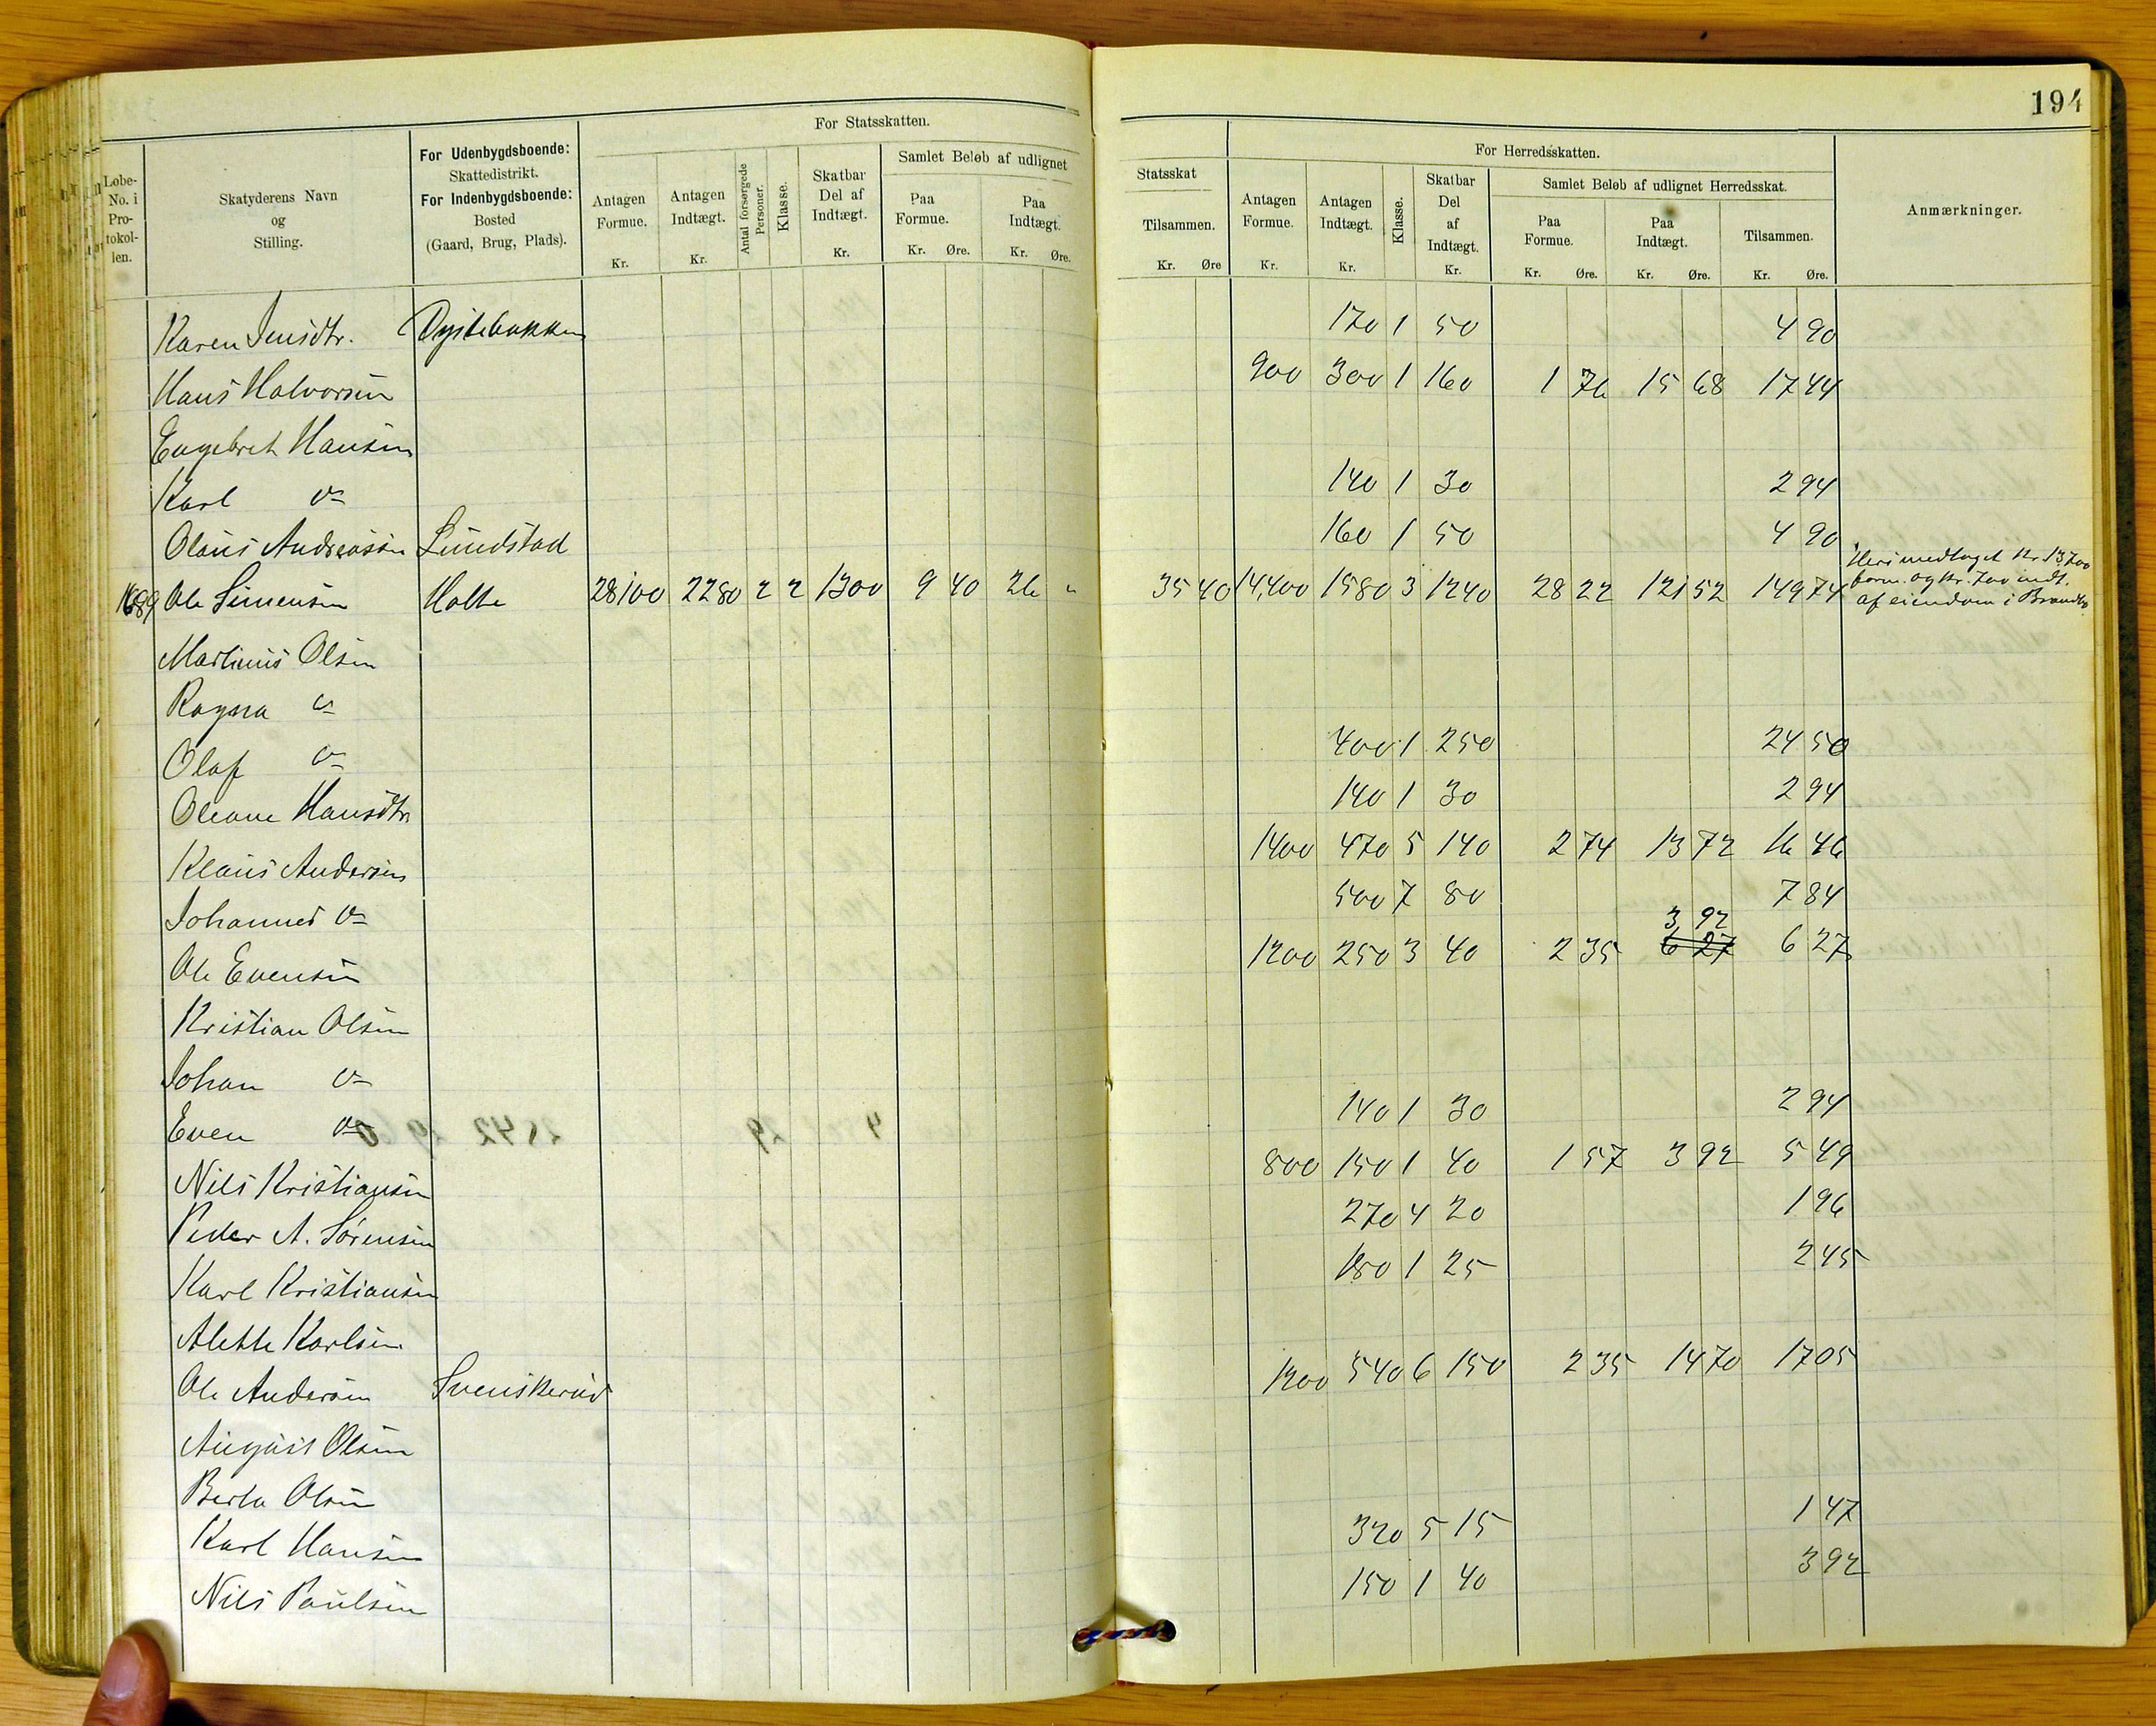 194
For Statsskatten.
For Herredsskatten.
Løbe-No. i Pro-tokol-len.
Skatyderens Navn og Stilling.
For Udenbygdsboende: Skattedistrikt. For Indenbygdsboende: Bosted (Gaard, Brug, Plads).
Antagen Formue. Kr.
Antagen Indtægt. Kr.
Antal forsørgede Personer.
Klasse.
Skatbar Del af Indtægt. Kr.
Samlet Beløb af udlignet
Paa Formue. Kr. Øre.
Paa Indtægt. Kr. Øre.
Statsskat
Tilsammen. Kr. Øre
Antagen Formue. Kr.
Antagen Indtægt. Kr.
Klasse.
Skatbar Del af Indtægt. Kr.
Samlet Beløb af udlignet Herredsskat.
Paa Formue. Kr. Øre.
Paa Indtægt. Kr. Øre.
Tilsammen. Kr. Øre.
Anmærkninger.
Karen Jensdtr. Dystebakken 170 1 50 4 90
Hans Halvorsen 900 300 1 160 1 76 15 68 17 44
Engebret Hansen
Karl do 140 1 30 2 94
Olaus Andreassen Lundstad 160 1 50 4 90
1689 Ole Simensen Holte 28100 2280 2 2 1300 9 40 26 " 35 40 14,400 1580 3 1240 28 22 121 52 149 74
Heri medtaget kr. 13700
form. og kr. 700 indt.
af eiendom i Brandbo
Martinus Olsen
Ragna do
Olaf do 400 1 250 24 50
Oleane Hansdtr 140 1 30 2 94
Klaus Andersen 1400 470 5 140 2 74 13 72 16 46
Johannes do 500 7 80 7 84
3 92
Ole Evensen 1200 250 3 40 2 35 6 27 6 27
Kristian Olsen
Johan do
Even do 140 1 30 2 94
Nils Kristiansen 800 150 1 40 1 57 3 92 5 49
Peder A. Sørensen 270 4 20 1 96
Karl Kristiansen 130 1 25 2 45
Alette Karlsen
Ole Andersen Svenskerud 1200 540 6 150 2 35 14 70 17 05
August Olsen
Berta Olsen
Karl Hansen 320 5 15 1 47
Nils Paulsen 150 1 40 3 92